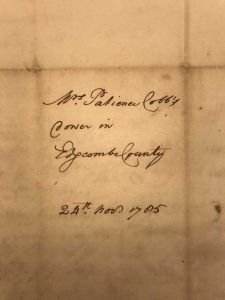 Mrs Patience Cobb's
Dower in
Edgcombe County
24th Novr 1785